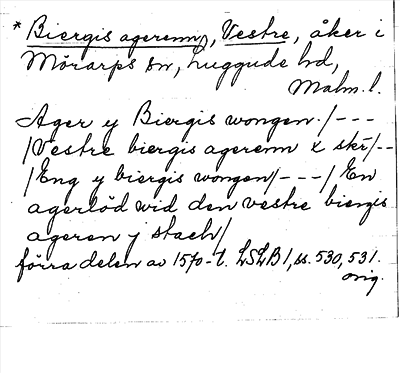 * Biergis agerenn, Vestre, åker i
Mörarps sn, Luggude hd,
Malm. l.
Ager y Biergis wongen. /---
/Vestre biergis agerenn x skr̄/--
/Eng y biergis wongen/---/ En
agerlöd wid den vestre biergis
ageren j stach/
förra delen av 1570-t. LSLB 1, ss. 530, 531.
orig.